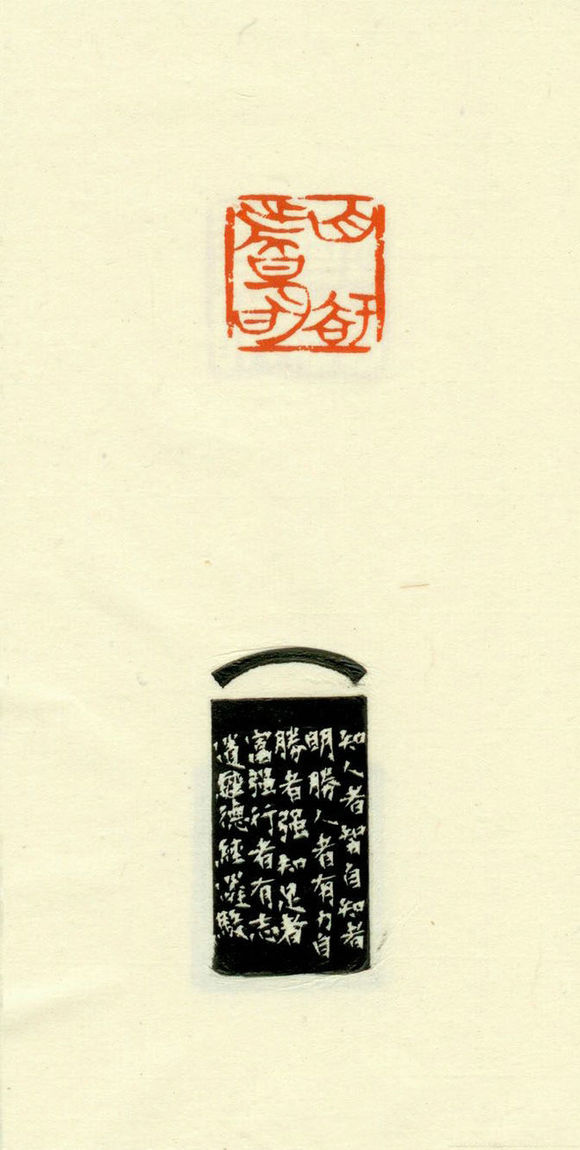 自知
者明
知人者智自知者
明勝人者有力自
勝者强知足者
富强行者有志
道經德經